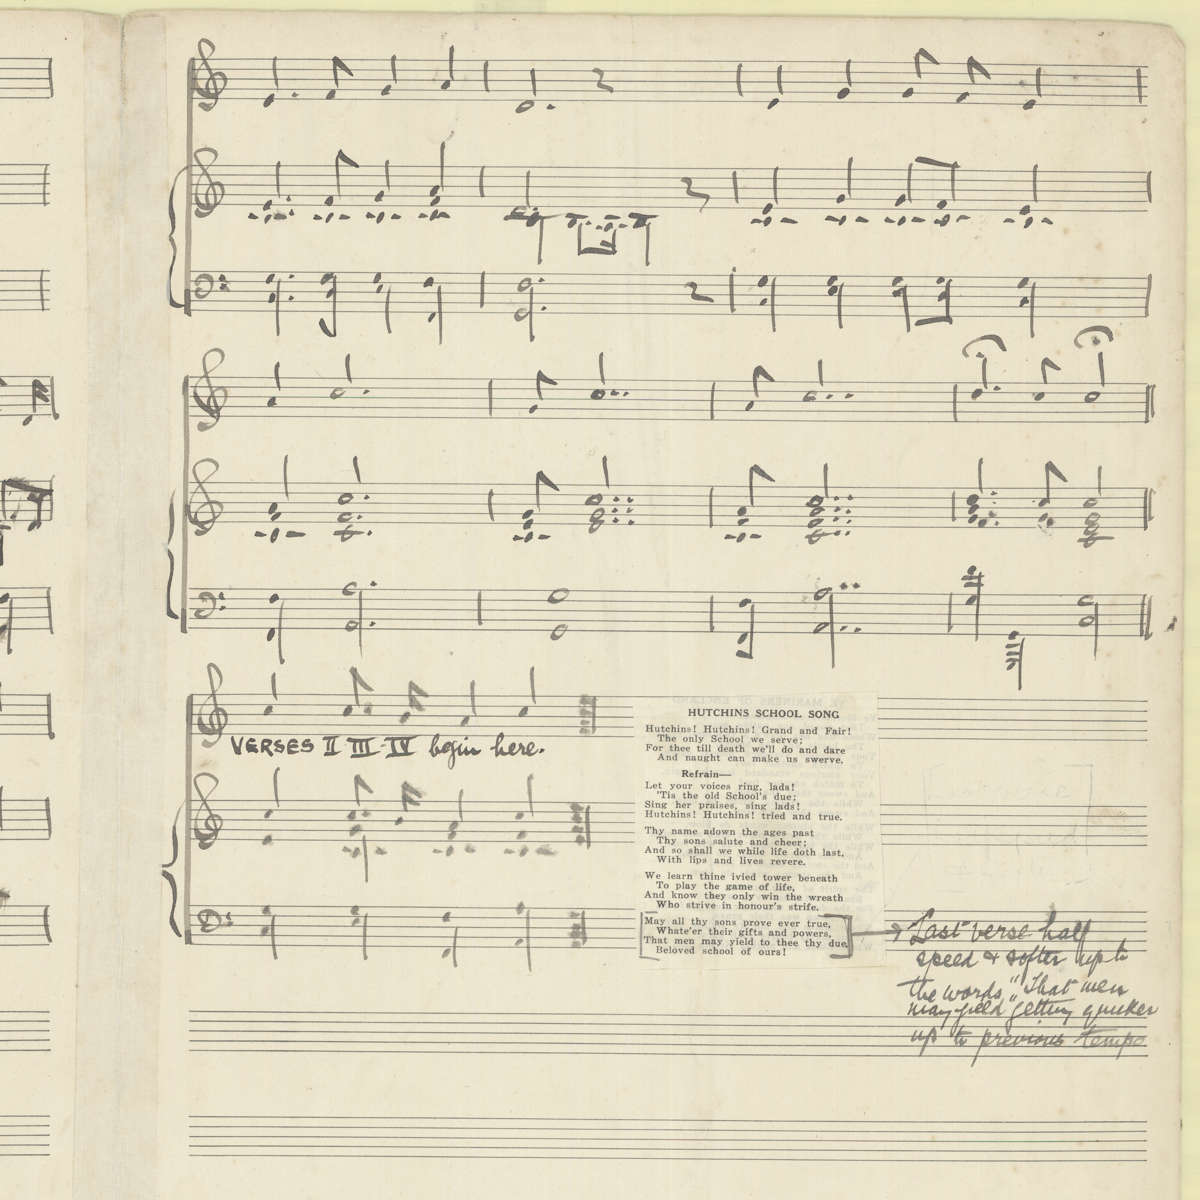 VERSES II III IV begin here.
HUTCHINS SCHOOL SONG
Hutchins! Hutchins! Grand and Fair!
The only School we serve;
For thee till death we'll do and dare
And naught can make us swerve.
Refrain—
Let your voices ring, lads!
'Tis the old School's due;
Sing her praises, sing lads!
Hutchins! Hutchins! tried and true.
Thy name adown the ages past
Thy sons salute and cheer;
And so shall we while life doth last,
With lips and lives revere.
We learn thine ivied tower beneath
To play the game of life,
And know they only win the wreath
Who strive in honour's strife.
May all thy sons prove ever true,
Whate'er their gifts and powers,
That men may yield to thee thy due,
Beloved school of ours!
Last verse half
speed & softer up to
the words "That men
may yield getting quicker
up to previous tempo